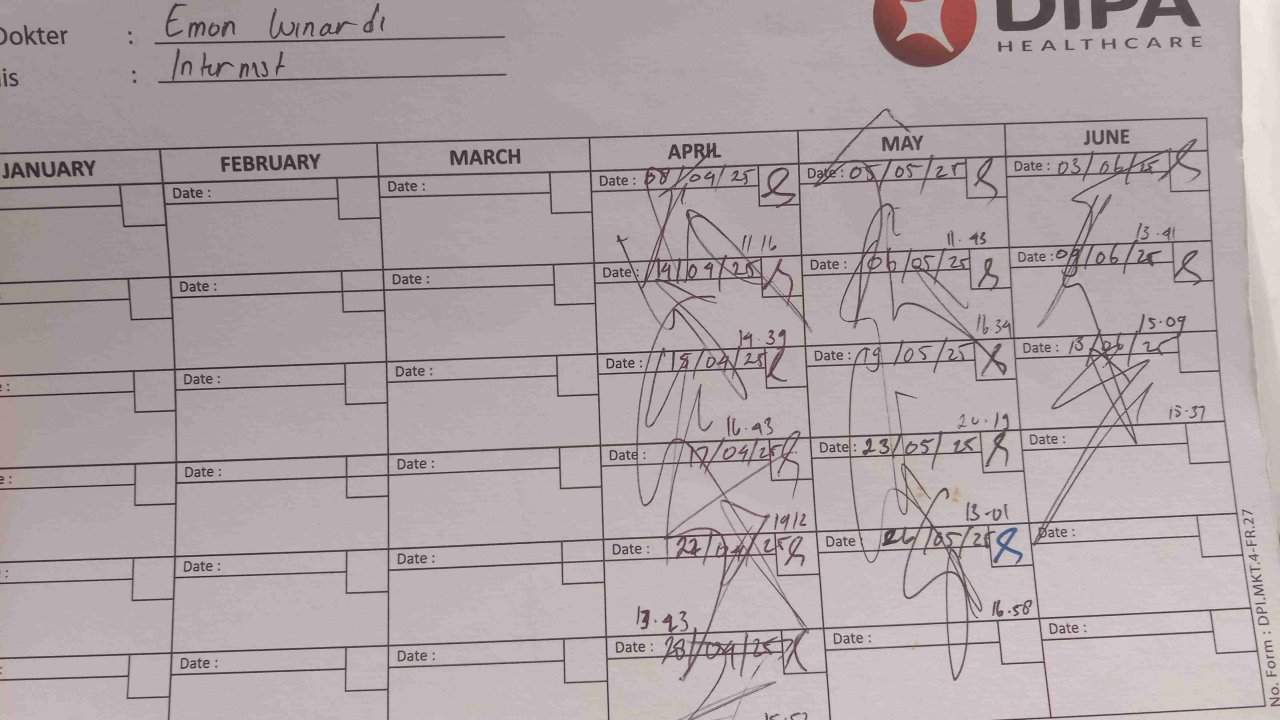 Dokter : Emon Winardi
DIPA
HEALTHCARE
is : Internist
JANUARY FEBRUARY MARCH APRIL MAY JUNE
Date : Date : Date : 08/04/25 Date: 05/05/25 Date : 03/06/25
11 16 11.43 13.41
Date : Date : Date: 14/04/25 Date : 06/05/25 Date : 09/06/25
14.39 16.34 15.09
: Date : Date : Date : 15/04/25 Date : 19/05/25 Date : 13/06/25
16.43 20.19 15.37
: Date : Date : Date: 17/04/25 Date: 23/05/25 Date :
1912 13-01
: Date : Date : Date : 22/04/25 Date 26/05/25 Date :
13.43 16.58
: Date : Date : Date : 28/04/25 Date : Date :
15.53
No. Form : DPI.MKT.4-FR.27